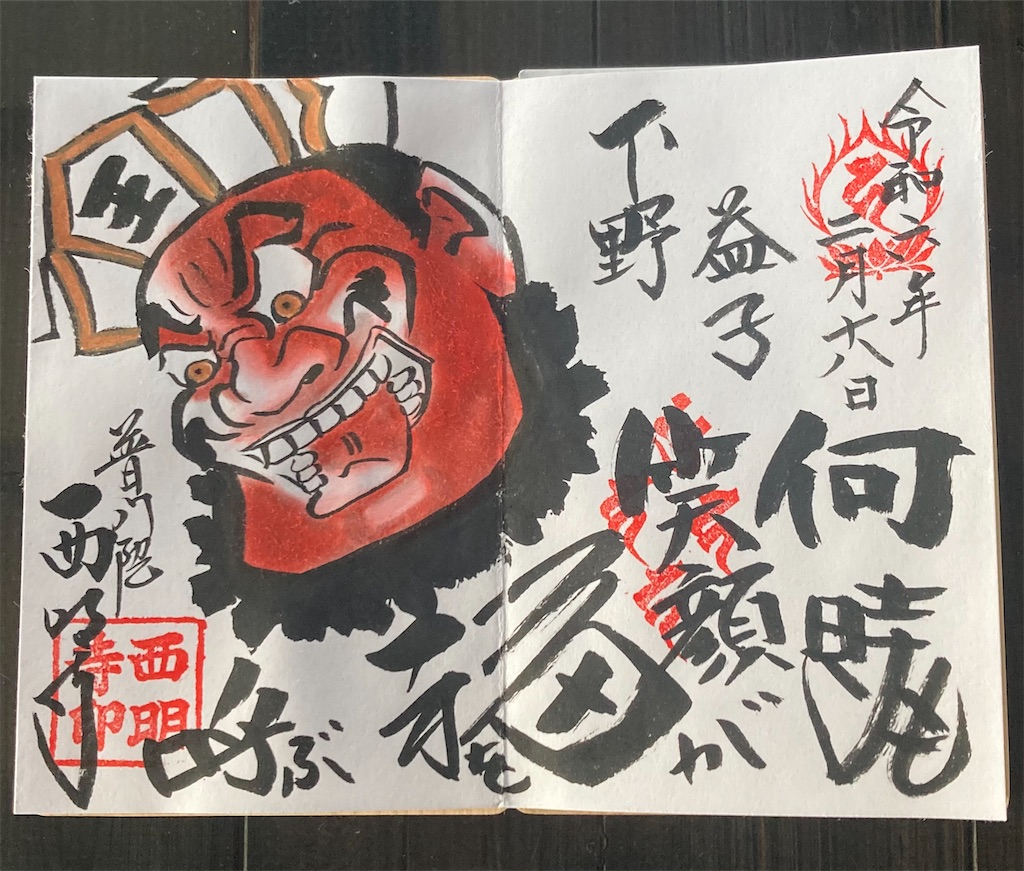 令和年
二月十八日
益子
下野
何時も
笑顔が
を
呼ぶ
王
普門院
西明寺
西明
寺印